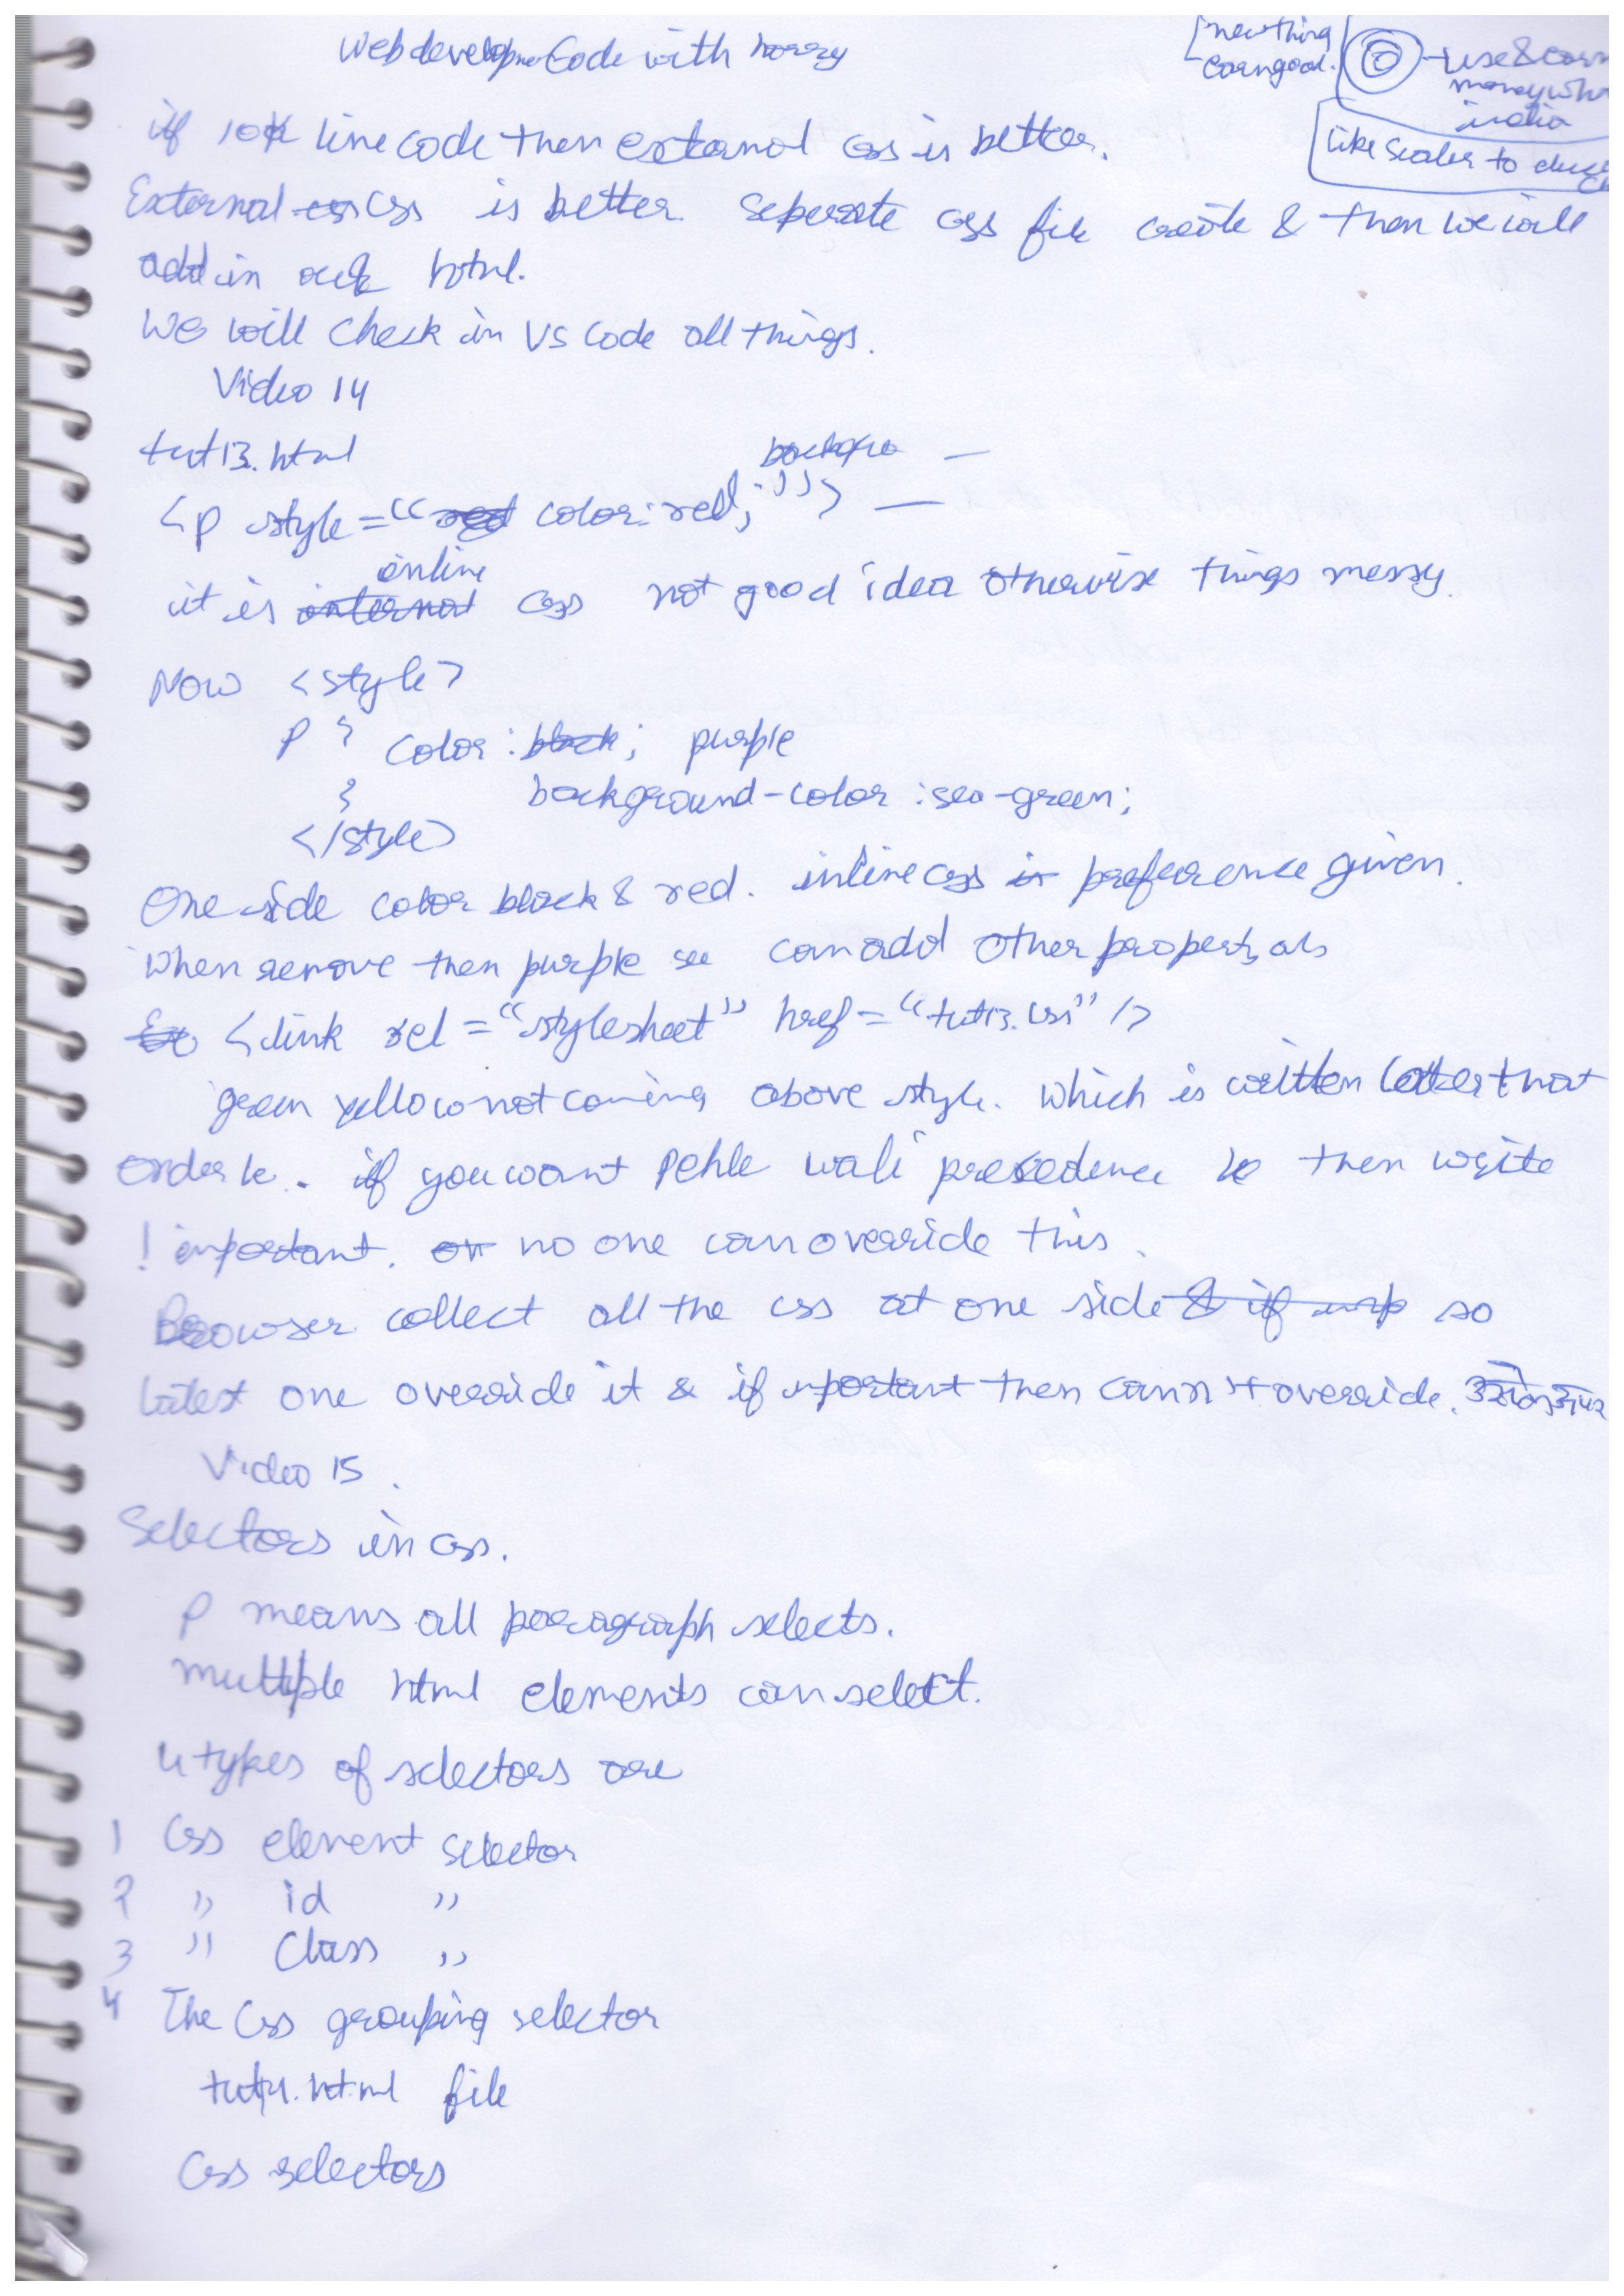 Web development Code with harry
new thing
earn good.
use & earn
money
india
like scaler to
if 10k line code then external css is better.
External css css is better. Seperate css file create & then we will
add in our html.
We will check in VS Code all things.
Video 14
tut13.html
backgro —
<p style="red color: red;"> —
inline
it is internal css not good idea otherwise things messy.
Now <style>
p { color: black; purple
} background-color: sea-green;
</style>
One side color black & red. inline css is preference given.
When remove then purple see can add other property als
Ex <link rel="stylesheet" href="tut13.css" />
green yellow not coming above style. Which is written later that
order le. if you want Pehle wali presedence le then write
! important. or no one can override this.
Browser collect all the css at one side & if imp so
latest one override it & if important then cannot override.
Video 15.
Selectors in css.
P means all paragraph selects.
multiple html elements can select.
4 types of selectors are
1 Css element selector
2 " id "
3 " Class "
4 The Css grouping selector
tut14.html file
Css selectors